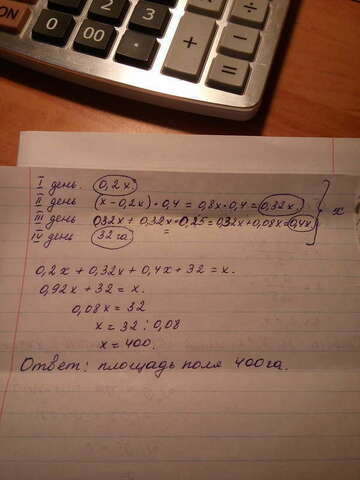 ON 0 00 . 2 3 + ÷ - =
I день. 0,2x.
II день (x-0,2x)·0,4 = 0,8x·0,4 = 0,32x. } x
III день 0,32x + 0,32x·0,25 = 0,32x+0,08x = 0,4x
IV день 32 га.
0,2x + 0,32x + 0,4x + 32 = x.
0,92x + 32 = x.
0,08x = 32
x = 32 : 0,08
x = 400.
Ответ: площадь поля 400га.